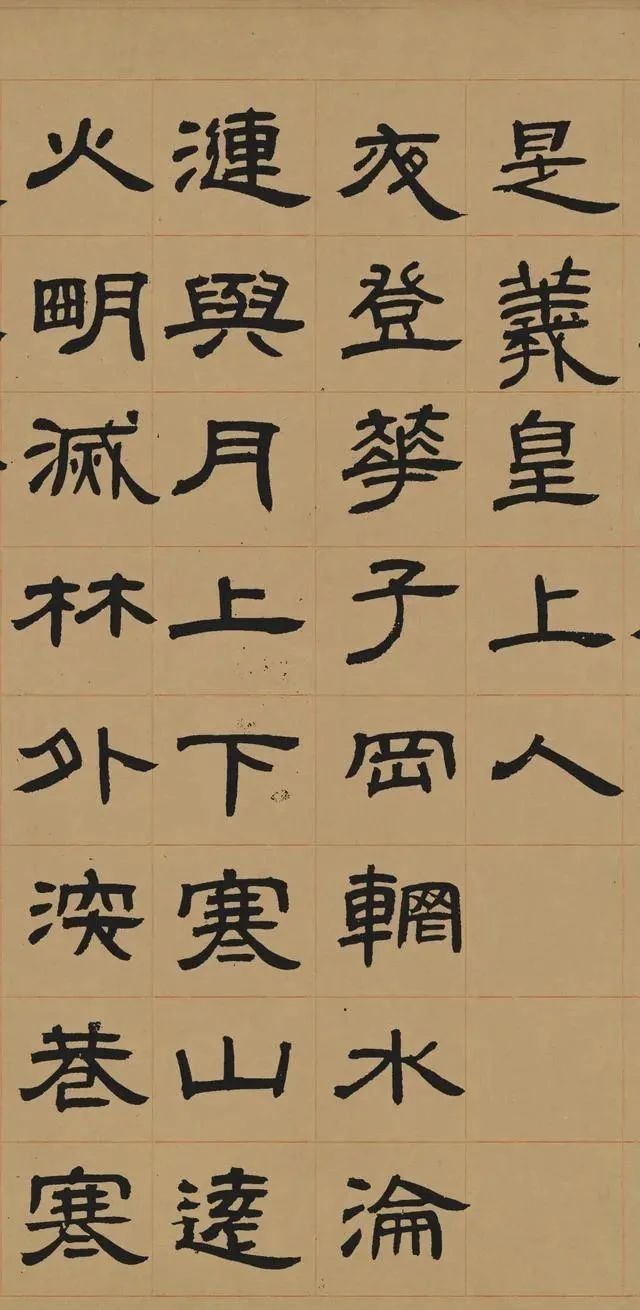 是羲皇上人
夜登華子岡輞水淪
漣與月上下寒山遠
火朙滅林外深巷寒